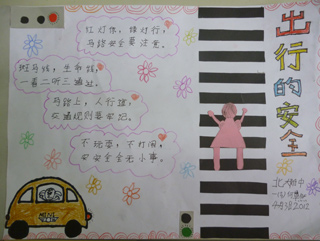 出行的安全
红灯停，绿灯行，
马路安全要注意。
斑马线，生命线，
一看二听三通过。
马路上，人行道，
交通规则要牢记。
不玩耍，不打闹，
安全安全无小事。